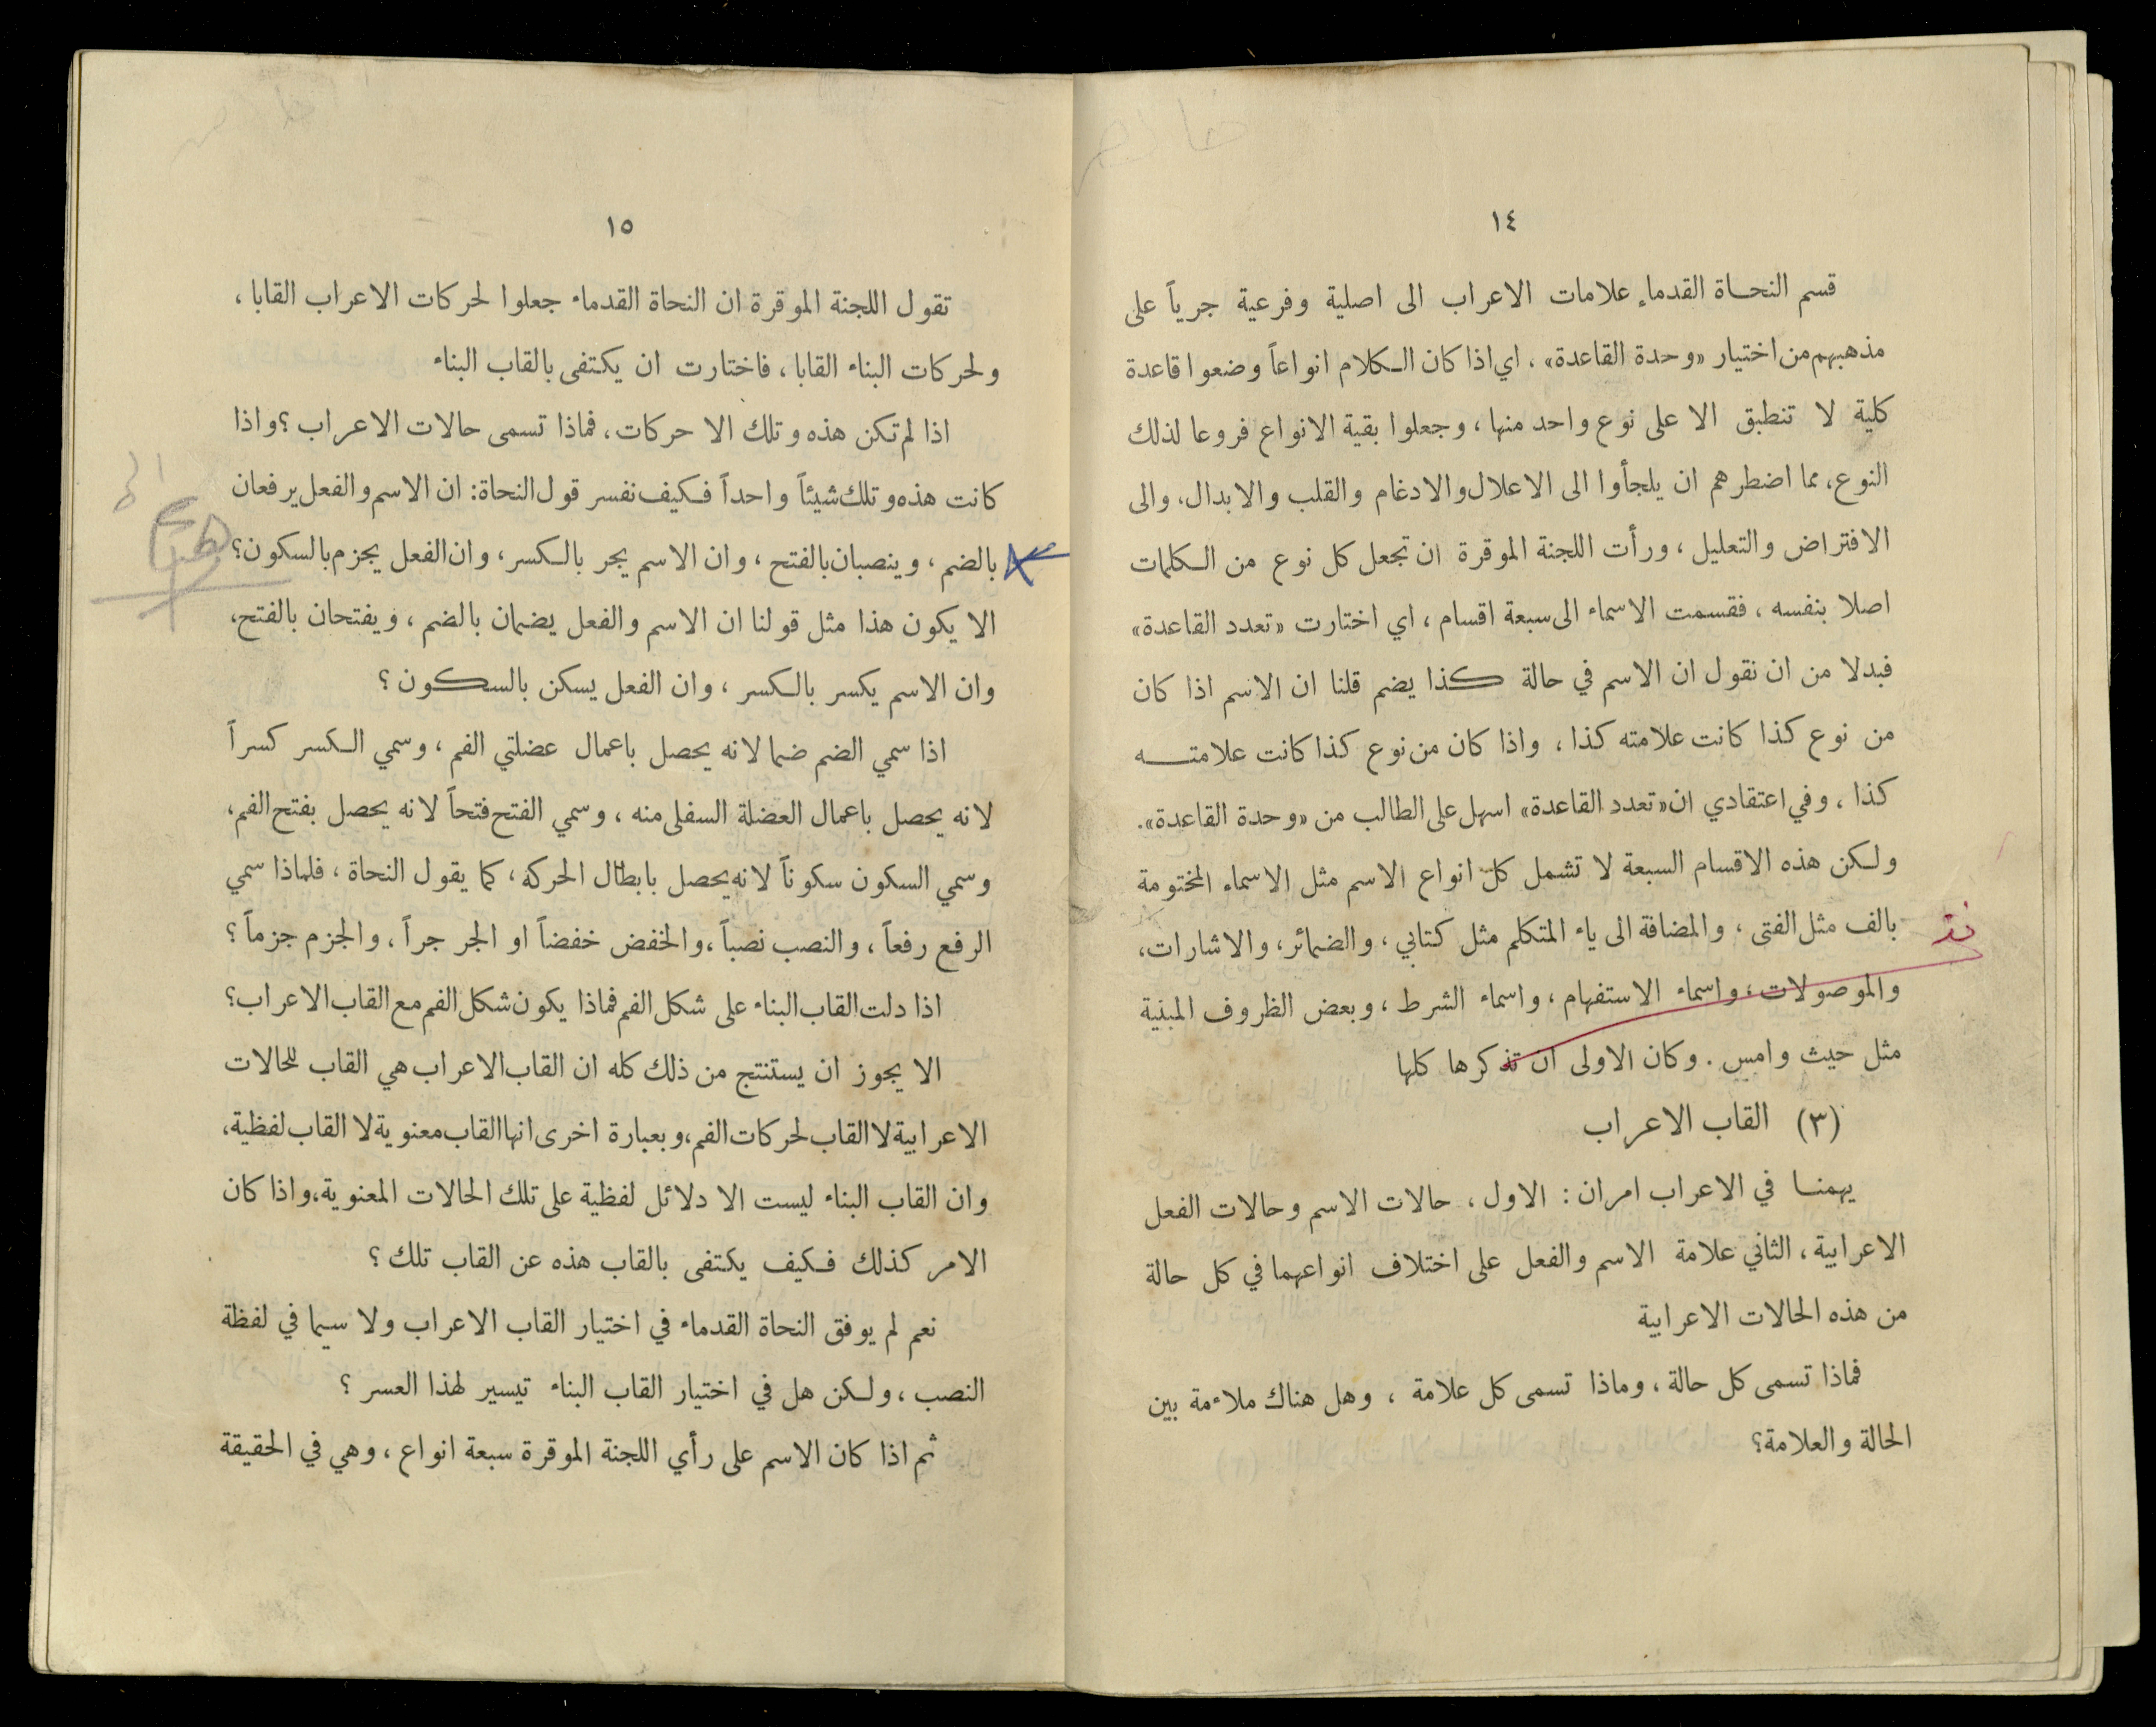 ١٤
قسم النحاة القدماء علامات الاعراب الى اصلية وفرعية جرياً على
مذهبهم من اختيار «وحدة القاعدة»، اي اذا كان الكلام انواعاً وضعوا قاعدة
كلية لا تنطبق الا على نوع واحد منها، وجعلوا بقية الانواع فروعا لذلك
النوع، مما اضطرهم ان يلجأوا الى الاعلال والادغام والقلب والابدال، والى
الافتراض والتعليل، ورأت اللجنة الموقرة ان تجعل كل نوع من الكلمات
اصلا بنفسه، فقسمت الاسماء الى سبعة اقسام، اي اختارت «تعدد القاعدة»
فبدلا من ان نقول ان الاسم في حالة كذا يضم قلنا ان الاسم اذا كان
من نوع كذا كانت علامته كذا، واذا كان من نوع كذا كانت علامته
كذا، وفي اعتقادي ان «تعدد القاعدة» اسهل على الطالب من «وحدة القاعدة».
ولكن هذه الاقسام السبعة لا تشمل كل انواع الاسم مثل الاسماء المختومة
بالف مثل الفتى، والمضافة الى ياء المتكلم مثل كتابي، والضمائر، والاشارات،
والموصولات، واسماء الاستفهام، واسماء الشرط، وبعض الظروف المبنية
مثل حيث وامس. وكان الاولى ان تذكرها كلها
(٣) القاب الاعراب
يهمنا في الاعراب امران: الاول، حالات الاسم وحالات الفعل
الاعرابية، الثاني علامة الاسم والفعل على اختلاف انواعهما في كل حالة
من هذه الحالات الاعرابية
فماذا تسمى كل حالة، وماذا تسمى كل علامة، وهل هناك ملاءمة بين
الحالة والعلامة؟
١٥
تقول اللجنة الموقرة ان النحاة القدماء جعلوا لحركات الاعراب القابا،
ولحركات البناء القابا، فاختارت ان يكتفى بالقاب البناء
اذا لم تكن هذه وتلك الا حركات، فماذا تسمى حالات الاعراب؟ واذا
كانت هذه وتلك شيئاً واحداً فكيف نفسر قول النحاة: ان الاسم والفعل يرفعان
بالضم، وينصبان بالفتح، وان الاسم يجر بالكسر، وان الفعل يجزم بالسكون؟
الا يكون هذا مثل قولنا ان الاسم والفعل يضمان بالضم، ويفتحان بالفتح،
وان الاسم يكسر بالكسر، وان الفعل يسكن بالسكون؟
اذا سمي الضم ضما لانه يحصل باعمال عضلتي الفم، وسمي الكسر كسراً
لانه يحصل باعمال العضلة السفلى منه، وسمي الفتح فتحاً لانه يحصل بفتح الفم،
وسمي السكون سكوناً لانه يحصل بابطال الحركة، كما يقول النحاة، فلماذا سمي
الرفع رفعاً، والنصب نصباً، والخفض خفضاً او الجر جراً، والجزم جزماً؟
اذا دلت القاب البناء على شكل الفم فماذا يكون شكل الفم مع القاب الاعراب؟
الا يجوز ان يستنتج من ذلك كله ان القاب الاعراب هي القاب للحالات
الاعرابية لا القاب لحركات الفم، وبعبارة اخرى انها القاب معنوية لا القاب لفظية،
وان القاب البناء ليست الا دلائل لفظية على تلك الحالات المعنوية، واذا كان
الامر كذلك فكيف يكتفى بالقاب هذه عن القاب تلك؟
نعم لم يوفق النحاة القدماء في اختيار القاب الاعراب ولا سيما في لفظة
النصب، ولكن هل في اختيار القاب البناء تيسير لهذا العسر؟
ثم اذا كان الاسم على رأي اللجنة الموقرة سبعة انواع، وهي في الحقيقة